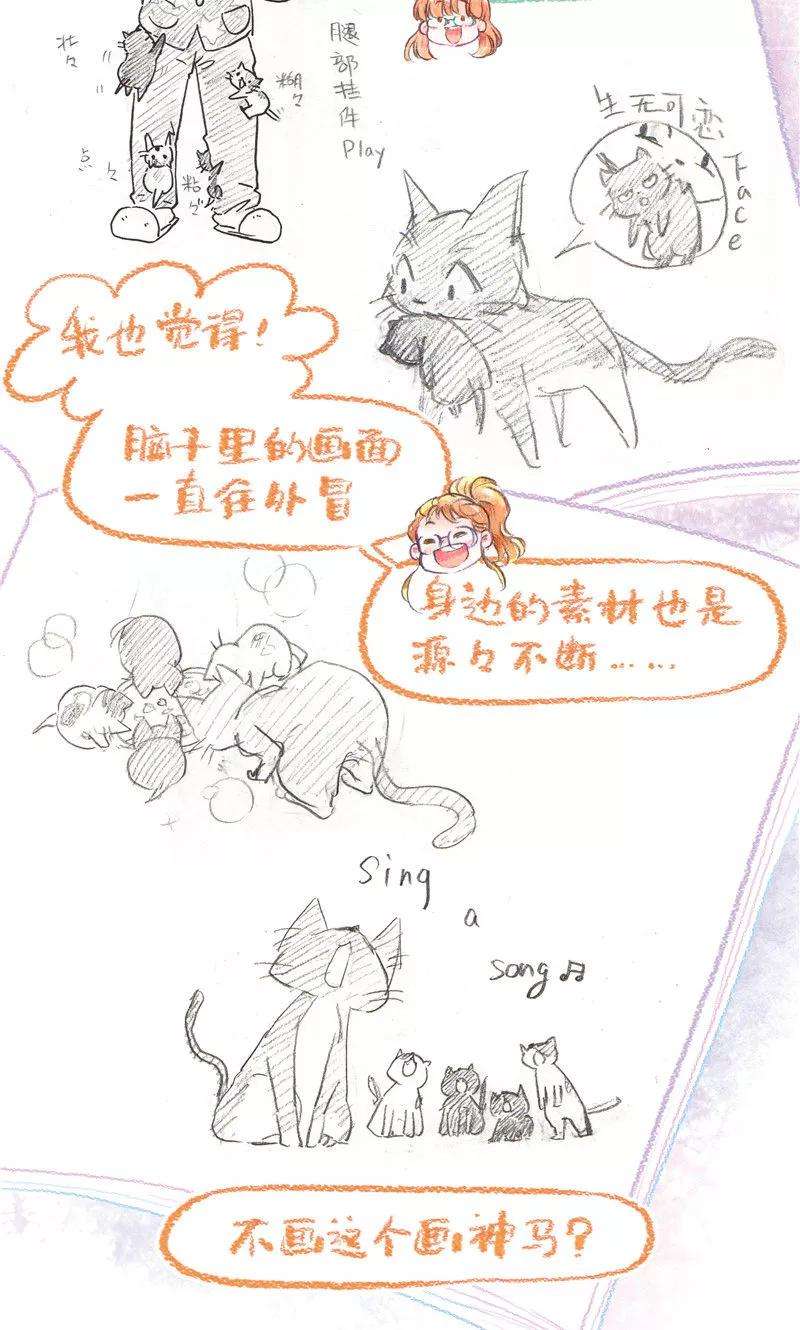 壮々
糊々
点々
粘々
腿部挂件Play
生无可恋
Face
我也觉得!
脑子里的画面
一直在外冒
身边的素材也是
源々不断……
Sing
a
song♫
不画这个画神马?